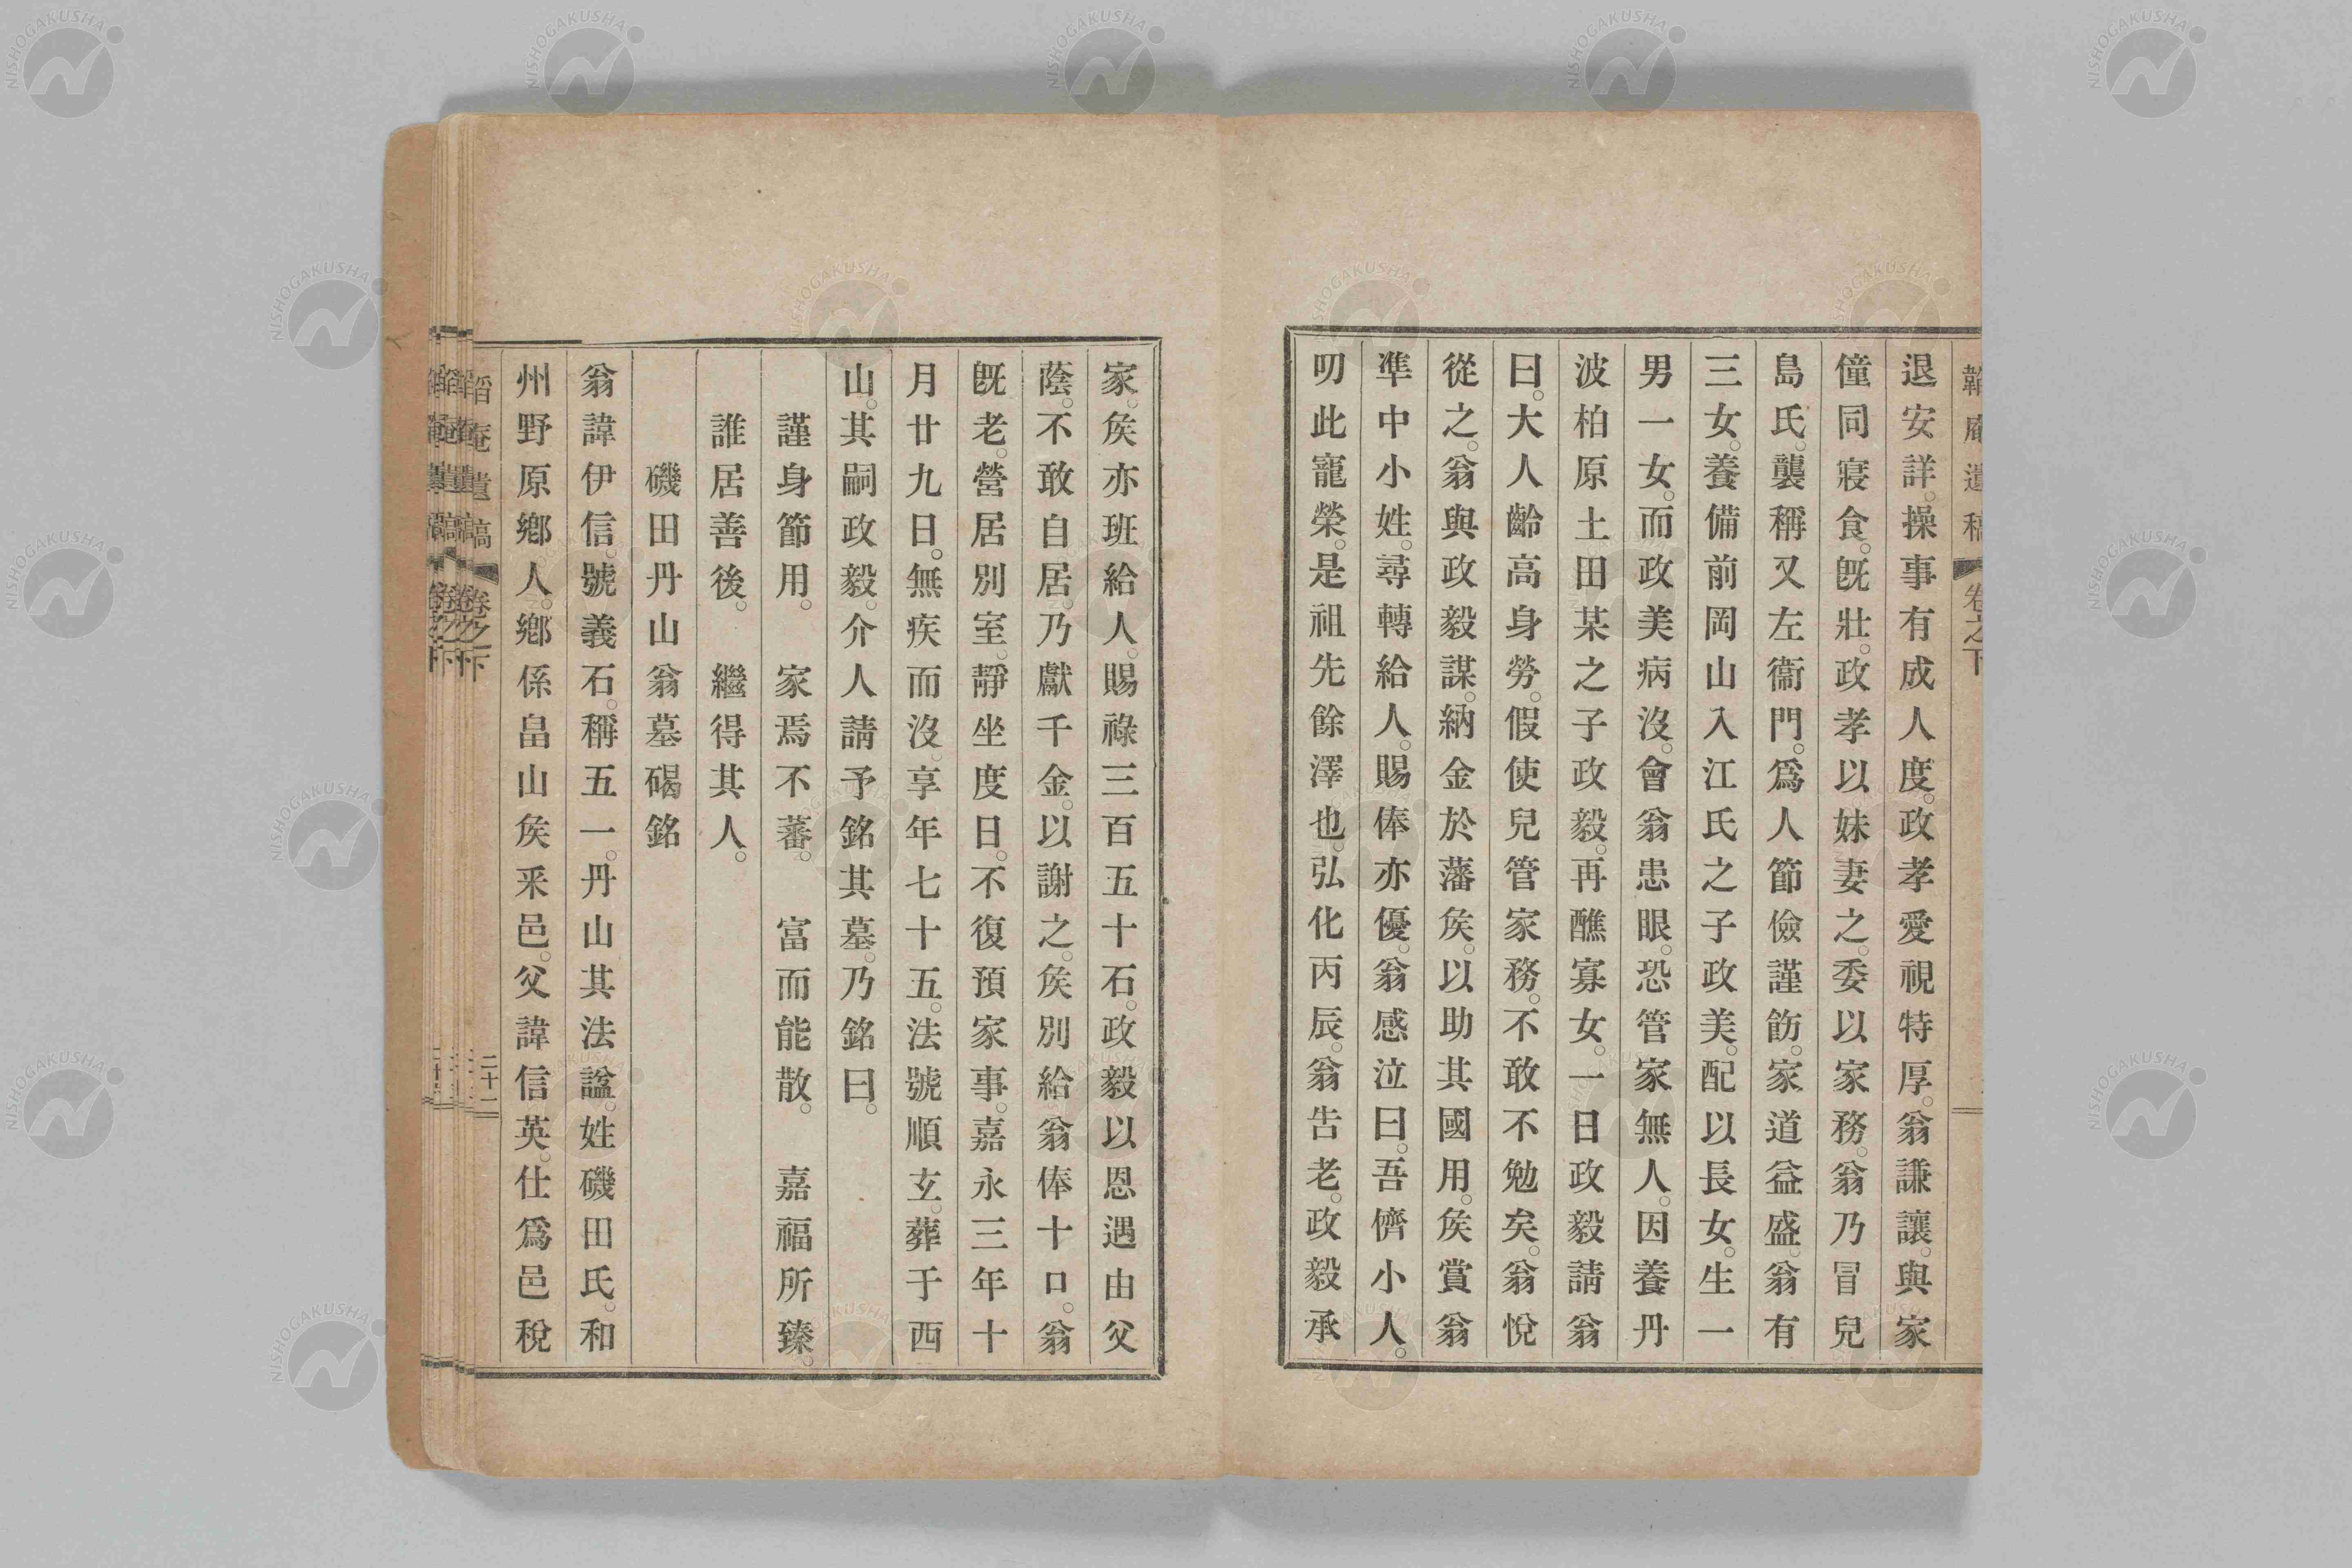 韜庵遺稿 卷之下
退安詳。操事有成人度。政孝愛視特厚。翁謙讓。與家
僮同寢食。既壯。政孝以妹妻之。委以家務。翁乃冒兒
島氏。襲稱又左衞門。爲人節儉謹飭。家道益盛。翁有
三女。養備前岡山入江氏之子政美。配以長女。生一
男一女。而政美病沒。會翁患眼。恐管家無人。因養丹
波柏原土田某之子政毅。再醮寡女。一日政毅請翁
曰。大人齡高身勞。假使兒管家務。不敢不勉矣。翁悅
從之。翁與政毅謀。納金於藩矦。以助其國用。矦賞翁
準中小姓。尋轉給人。賜俸亦優。翁感泣曰。吾儕小人。
叨此寵榮。是祖先餘澤也。弘化丙辰。翁告老。政毅承
家。矦亦班給人。賜祿三百五十石。政毅以恩遇由父
蔭。不敢自居。乃獻千金。以謝之。矦別給翁俸十口。翁
既老。營居別室。靜坐度日。不復預家事。嘉永三年十
月廿九日。無疾而沒。享年七十五。法號順玄。葬于西
山。其嗣政毅。介人請予銘其墓。乃銘曰。
謹身節用。 家焉不蕃。 富而能散。 嘉福所臻。
誰居善後。 繼得其人。
磯田丹山翁墓碣銘
翁諱伊信。號義石。稱五一。丹山其法諡。姓磯田氏。和
州野原鄉人。鄉係畠山矦釆邑。父諱信英。仕爲邑稅
韜庵遺稿 卷之下 二十二